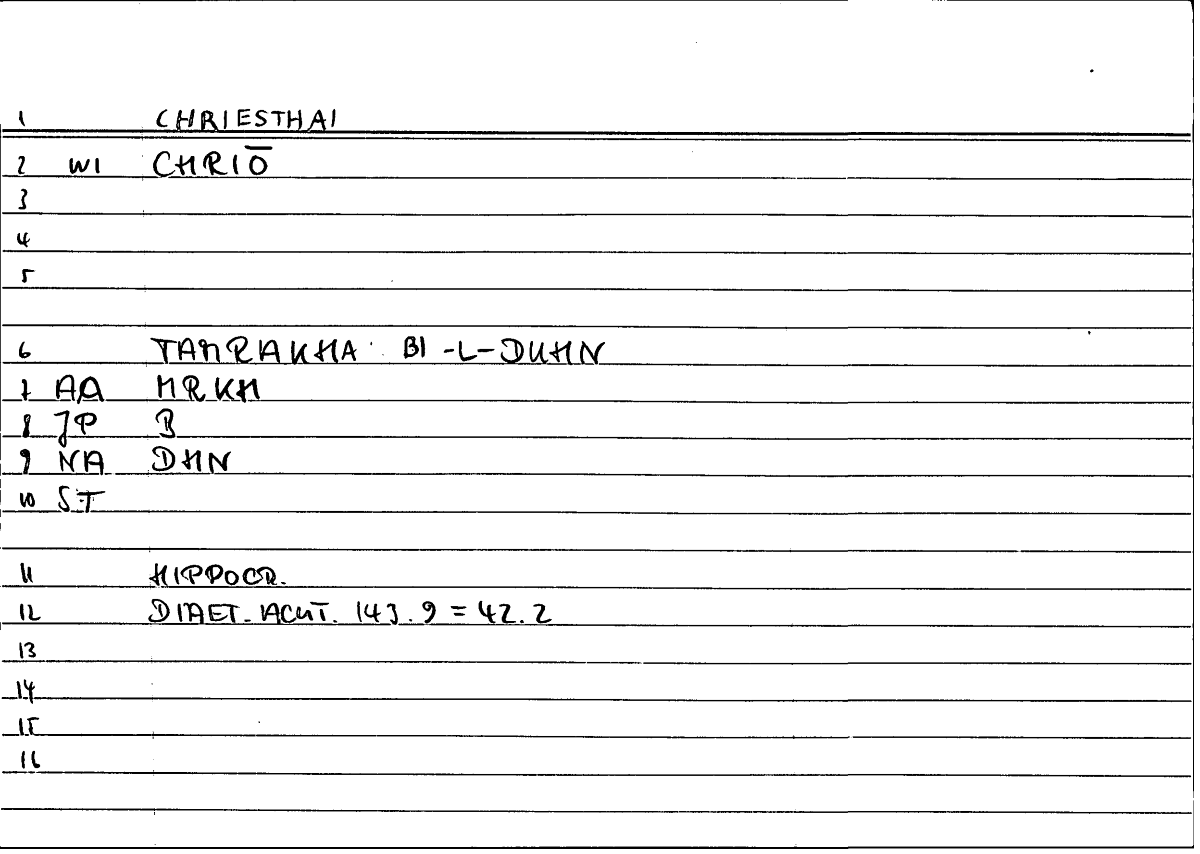 1 CHRIESTHAI
2 WI CHRIŌ
3
4
5
6 TAMRAKHA BI-L-DUHN
7 AA MRKH
8 JP B
9 NA DHN
10 ST
11 HIPPOCR.
12 DIAET. ACUT. 143.9 = 42.2
13
14
15
16